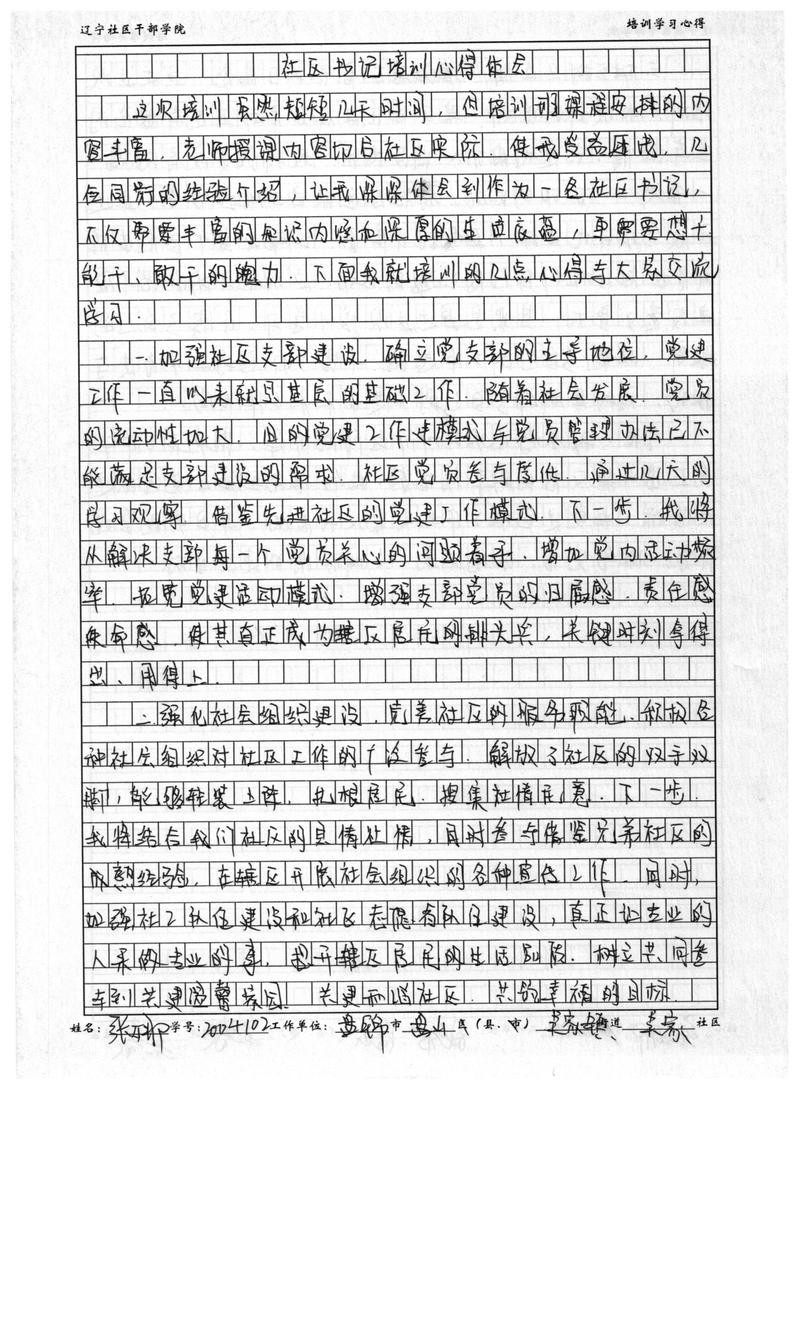 辽宁社区干部学院 培训学习心得
社区书记培训心得体会
这次培训虽然短短几天时间，但培训班课程安排的内
容丰富，老师授课内容切合社区实际，使我受益匪浅，几
位同员的经验介绍，让我深深体会到作为一名社区书记，
不仅需要丰富的知识内涵和深厚的专业底蕴，更需要想干
能干、敢干的魄力．下面我就培训的几点心得与大家交流
学习．
一．加强社区支部建设，确立党支部的主导地位，党建
工作一直以来就是基层的基础工作．随着社会发展，党员
的流动性加大，旧的党建工作建模式与党员管理办法已不
能满足支部建设的需求．社区党员参与度低．通过几天的
学习观摩，借鉴先进社区的党建工作模式，下一步，我将
从解决支部每一个党员关心的问题着手，增加党内活动频
率，拓宽党建活动模式．增强支部党员的归属感．责任感
使命感，使其真正成为辖区居民的排头兵，关键时刻拿得
出、用得上．
二．强化社会组织建设，完善社区的服务职能．积极各
种社会组织对社区工作的广泛参与．解放了社区的双手双
脚，能够轻装上阵，扎根居民．搜集社情民意．下一步．
我将结合我们社区的具情社情，同时参与借鉴兄弟社区的
成熟经验，在辖区开展社会组织的各种宣传工作．同时，
加强社工队伍建设和社区志愿者队伍建设，真正让专业的
人来做专业的事，提升辖区居民的生活品质．树立共同参
与到共建温馨家园．共建和谐社区．共筑幸福的目标．
姓名： 学号：2004102工作单位：盘锦市盘山区（县、市）吴家镇道 吴家 社区